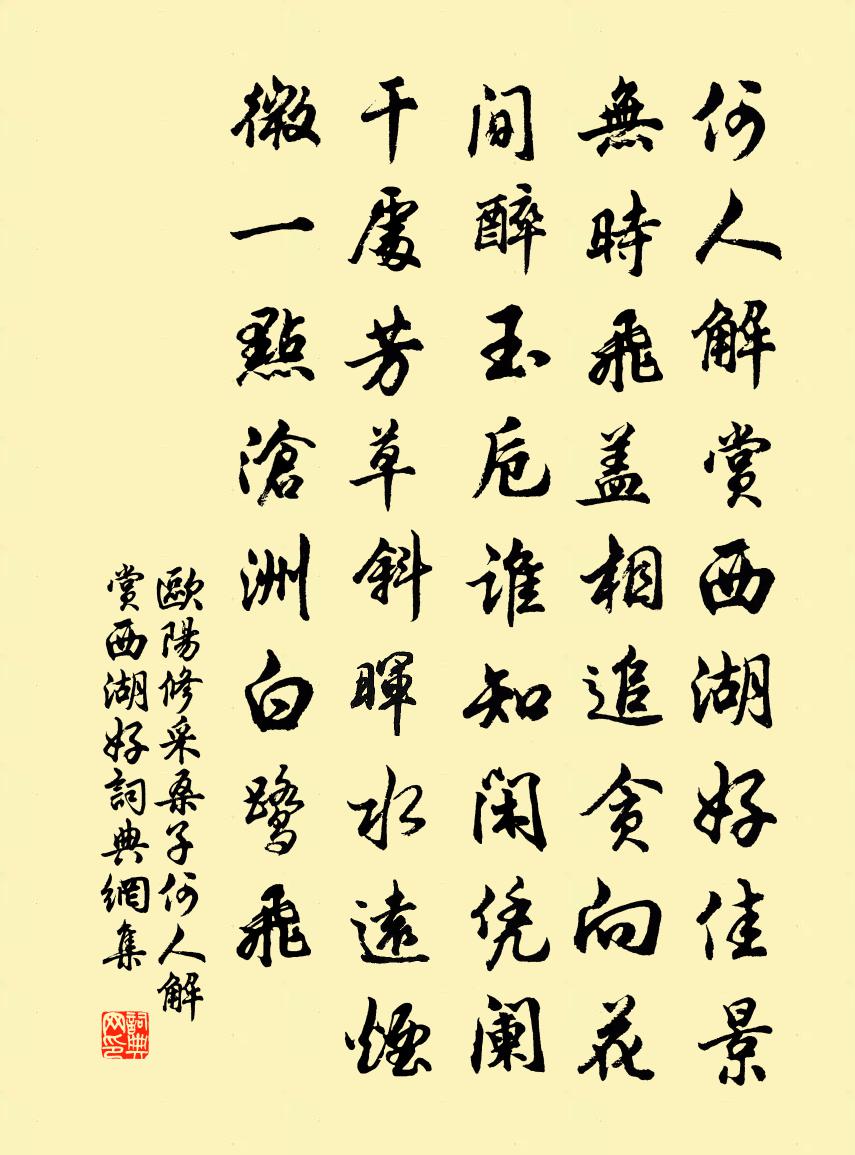 何人解賞西湖好佳景
無時飛盖相追貪向花
間醉玉卮誰知閑凭闌
干處芳草斜暉水遠煙
微一點滄洲白鷺飛
歐陽修采桑子何人解
賞西湖好詞典網集
詞典网印